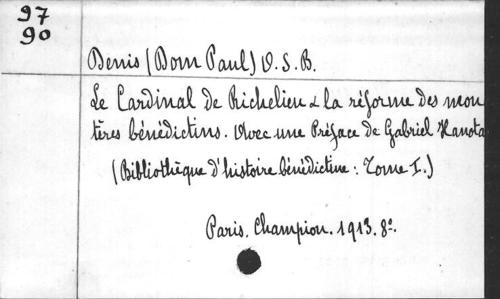 97
90
Denis (Dom Paul) O. S. B.
Le Cardinal de Richelieu & la réforme des mon
tères bénédictins. Avec une Préface de Gabriel Hanota
(Bibliothèque d'histoire bénédictine : Tome I.)
Paris. Champion. 1913. 8º.